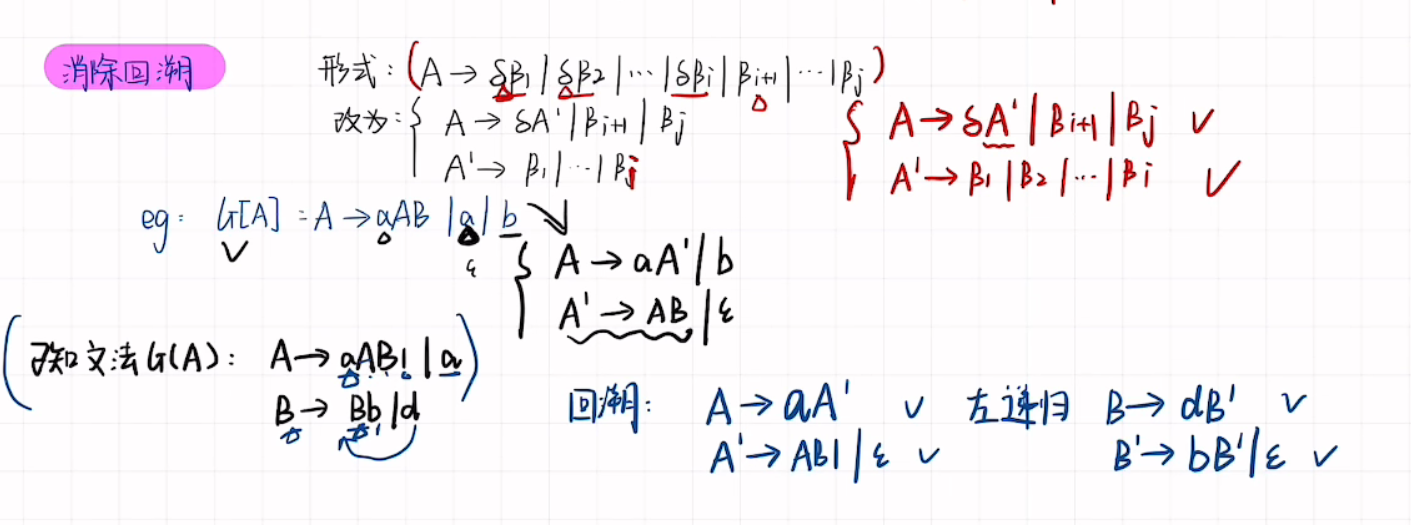 消除回溯
形式：(A → δβ₁ | δβ₂ | ⋯ | δβi | βi+1 | ⋯ | βj)
改为：{ A → δA' | βi+1 | βj
A' → β₁ | ⋯ | βj
{ A → δA' | βi+1 | βj ✓
A' → β₁ | β₂ | ⋯ | βi ✓
eg： G[A]：A → aAB | a | b
ε
{ A → aA' | b
A' → AB | ε
(已知文法G(A)： A → aABl | a)
B → Bb | d
回溯： A → aA' ✓ 左递归 B → dB' ✓
A' → ABl | ε ✓ B' → bB' | ε ✓